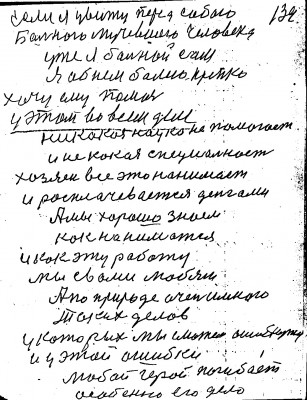 132
если я увижу перед собою
Болного мучевшего человека
уже я балной сам
Я обнем балию крепко
хочу ему помоч
у этом во всем деле
никокоя наука не помогает
и не кокая специалност
хозяен все это нанимает
и росплачевается денгами
Амы хорошо знаем
как наниматся
и кокэту работу
мы своми любям
Апо природе очен много
Таких делов
укоторых мы сможем
иуэтой ошибки
любой герой погибает
особенно его дело